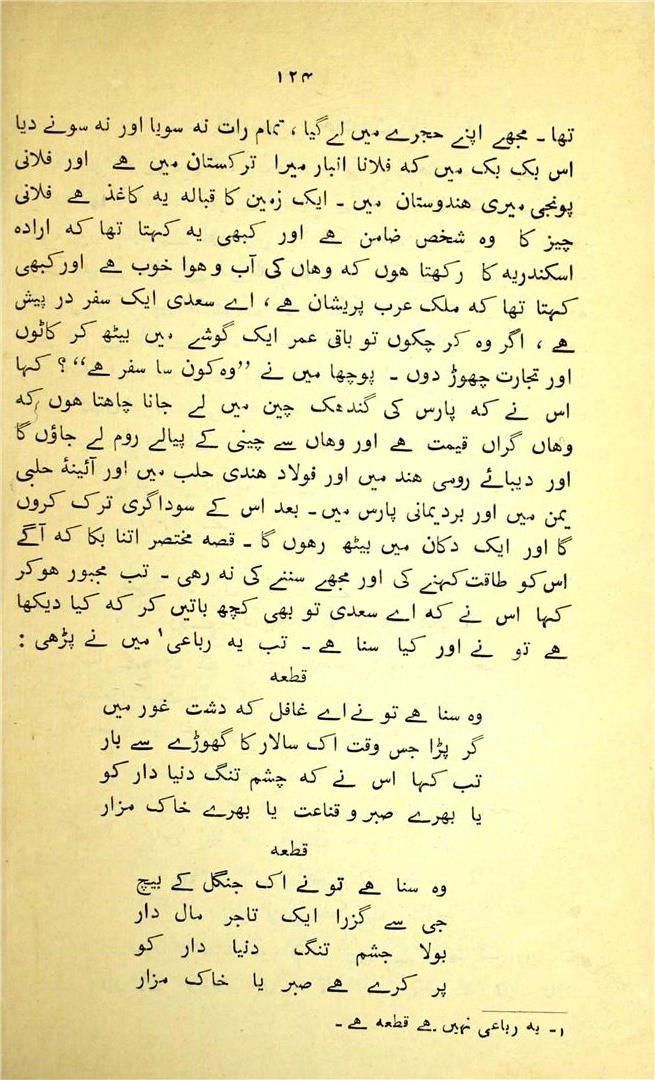 ۱۲۴
تھا ۔ مجھے اپنے حجرے میں لے گیا ، تمام رات نہ سویا اور نہ سونے دیا
اس بک بک میں کہ فلانا انبار میرا ترکستان میں ہے اور فلانی
پونجی میری ھندوستان میں ۔ ایک زمین کا قبالہ یہ کاغذ ہے فلانی
چیز کا وہ شخص ضامن ہے اور کبھی یہ کہتا تھا کہ ارادہ
اسکندریہ کا رکھتا ھوں کہ وھاں کی آب و ھوا خوب ہے اور کبھی
کہتا تھا کہ ملک عرب پریشان ہے ، اے سعدی ایک سفر در پیش
ہے ، اگر وہ کر چکوں تو باقی عمر ایک گوشے میں بیٹھ کر کاٹوں
اور تجارت چھوڑ دوں ۔ پوچھا میں نے ”وہ کون سا سفر ہے“ ؟ کہا
اس نے کہ پارس کی گندھک چین میں لے جانا چاھتا ھوں کہ
وھاں گراں قیمت ہے اور وھاں سے چینی کے پیالے روم لے جاؤں گا
اور دیبائے رومی ھند میں اور فولاد ھندی حلب میں اور آئینۂ حلبی
یمن میں اور بردیمانی پارس میں ۔ بعد اس کے سوداگری ترک کروں
گا اور ایک دکان میں بیٹھ رھوں گا ۔ قصہ مختصر اتنا بکا کہ آگے
اس کو طاقت کہنے کی اور مجھے سننے کی نہ رھی ۔ تب مجبور ھوکر
کہا اس نے کہ اے سعدی تو بھی کچھ باتیں کر کہ کیا دیکھا
ہے تو نے اور کیا سنا ہے ۔ تب یہ رباعی۱ میں نے پڑھی :
قطعہ
وہ سنا ھے تو نے اے غافل کہ دشت غور میں
گر پڑا جس وقت اک سالار کا گھوڑے سے بار
تب کہا اس نے کہ چشم تنگ دنیا دار کو
یا بھرے صبر و قناعت یا بھرے خاک مزار
قطعہ
وہ سنا ھے تو نے اک جنگل کے بیچ
جی سے گزرا ایک تاجر مال دار
بولا چشم تنگ دنیا دار کو
پر کرے ھے صبر یا خاک مزار
۱۔ یہ رباعی نہیں ھے قطعہ ھے ۔